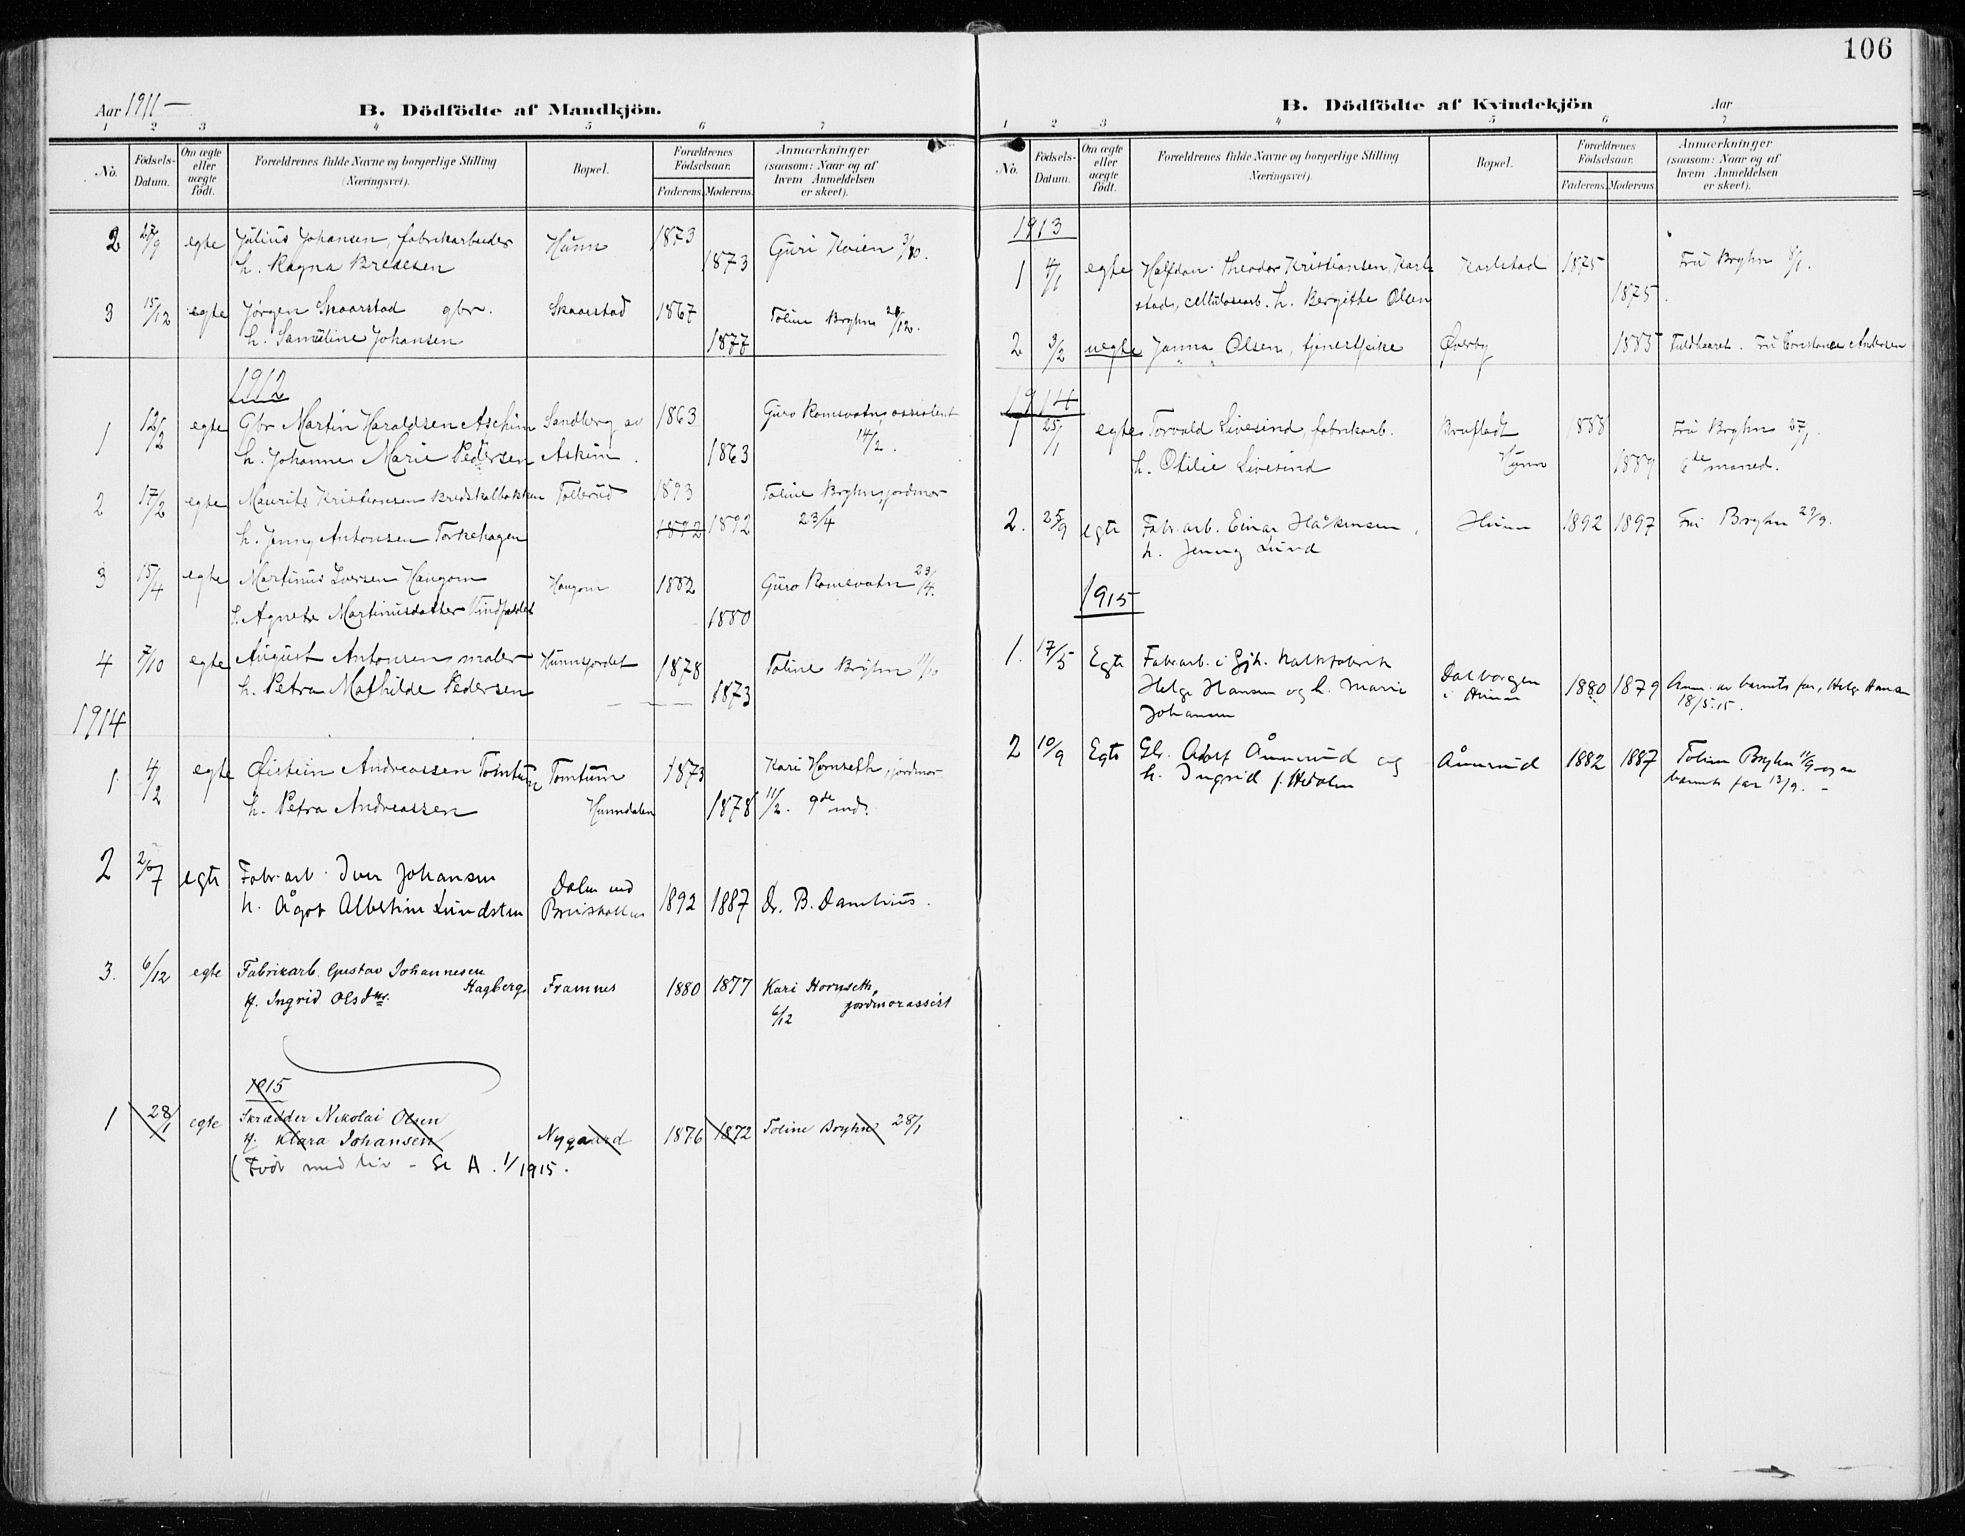 106
Aar 1911 –
B. Dödfödte af Mandkjön.
1 2 3 4 5 6 7
No. Födsels-Datum. Om ægte eller uægte födt. Forældrenes fulde Navne og borgerlige Stilling (Næringsvei). Bopæl. Forældrenes Födselsaar. Faderens. Moderens. Anmærkninger (saasom: Naar og af hvem Anmeldelsen er skeet).
2 27/9 egte Julius Johansen, fabrikarbeider Hunn 1873 Guri Kvien 3/10.
h. Ragna Bredesen 1873
3 15/12 egte Jørgen Skaarstad gbr. Skaarstad 1867 Toline Bryhn
h. Samuline Johansen 1877
1912
1 12/2 egte Gbr Martin Haraldsen Aschim Sandberg av 1863 Guro Romsvatn, assistent
h. Johanne Marie Pedersen Askim. 1863 14/2.
2 17/2 egte Maurits Kristiansen Tollerud 1893 Toline Bryhn, jordmor
h. Jenny Antonsen Torkehagen 1892 1892 23/4
3 15/4 egte Martinus Iversen Haugom Haugom 1882 Guro Romsvatn 23/4.
h. Agnete Martinusdatter 1880
4 7/10 egte August Antonsen, maler Hunnsjordet 1878 Toline Bryhn 11/10
h. Petra Mathilde Pedersen 1873
1914
1 4/2 egte Øistein Andreassen Tomtum Tomtum 1873 Kari Hornseth, jordmor
h. Petra Andreassen Hunndalen 1878 11/2. 9de md.
2 egte Fabr.arb. Iver Johansen Dalen ved
h. Ågot Albertine Lundsten 1892 1887 Dr. B.
3. 6/12 egte Fabrikarb. Gustav Johannesen
Hagberg Framnes 1880 1877 Kari Hornseth,
H. Ingrid Olsdtr. jordmorassist
6/12
1915
1 28/1 egte Skrædder Nikolai Olsen
H. Klara Johansen Nygaard 1876 1872 Toline Bryhn 28/1
(Født med liv – Se A. 1/1915.
B. Dödfödte af Kvindekjön
Aar
1 2 3 4 5 6 7
No. Födsels-Datum. Om ægte eller uægte födt. Forældrenes fulde Navne og borgerlige Stilling (Næringsvei). Bopæl. Forældrenes Födselsaar. Faderens. Moderens. Anmærkninger (saasom: Naar og af hvem Anmeldelsen er skeet).
1913
1 4/1 egte Halfdan Theodor Kristiansen, Karl- Karlstad 1875 Fru Bryhn 8/1.
stad, cellulosearb. h. Bergitte Olsen 1875
2 3/2 uegte Janna Olsen, tjenestpike Øverby 1885 Fuldbaaret. Fru Constance Andersen
1914
1 25/1 egte Torvald Livesind, fabrikarb. Brufladt 1888 Fru Bryhn 27/1
h. Otilie Livesind Hunn 1889 6te maaned.
2. 25/9 egte Fabr.arb. Einar Håkensen, Hunn 1892 1897 Fru Bryhn 29/9.
h. Jenny Lund
1915
1. 17/5 Egte Fabr.arb. i Gjk. kalkfabrik
Helge Hansen og h. Marie Dalborgen 1880 1879 Anm. av barnets far, Helge Hansen
Johansen i Hunn 18/5.15.
2 10/9 Egte Gbr. Adolf Åmrud og Åmrud 1882 1887 Toline Bryhn 11/9 og av
h. Ingrid f. Hedalen barnets far 13/9. –